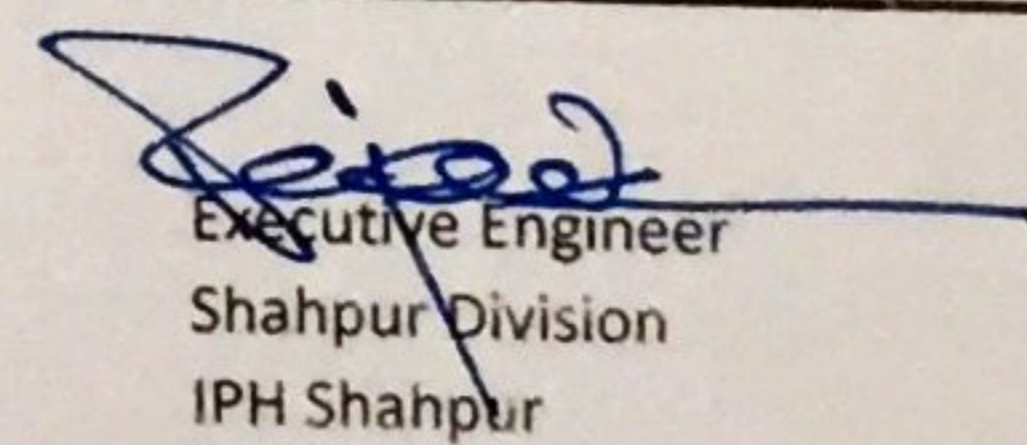 Executive Engineer
Shahpur Division
IPH Shahpur